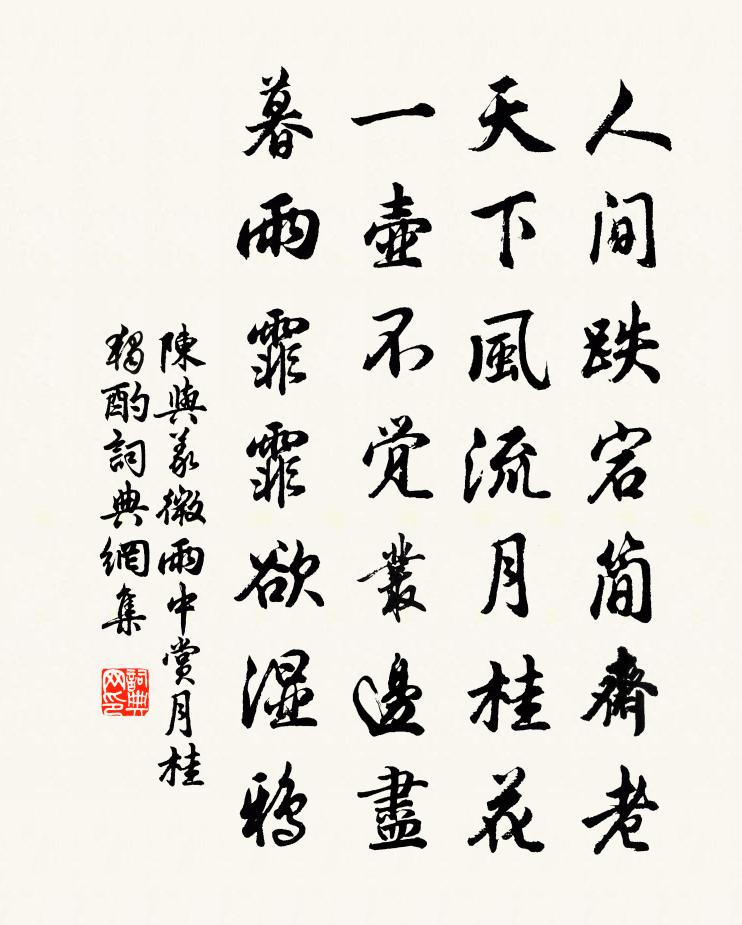 人間跌宕簡齋老
天下風流月桂花
一壺不覺叢邊盡
暮雨霏霏欲湿鴉
陳與義微雨中賞月桂
獨酌詞典網集
詞典
网印